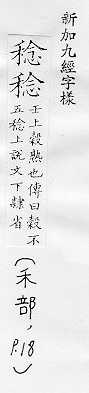 新加九經字樣
稔稔
壬上穀熟也傳曰穀不
五稔上說文下隸省
(禾部, P.18)